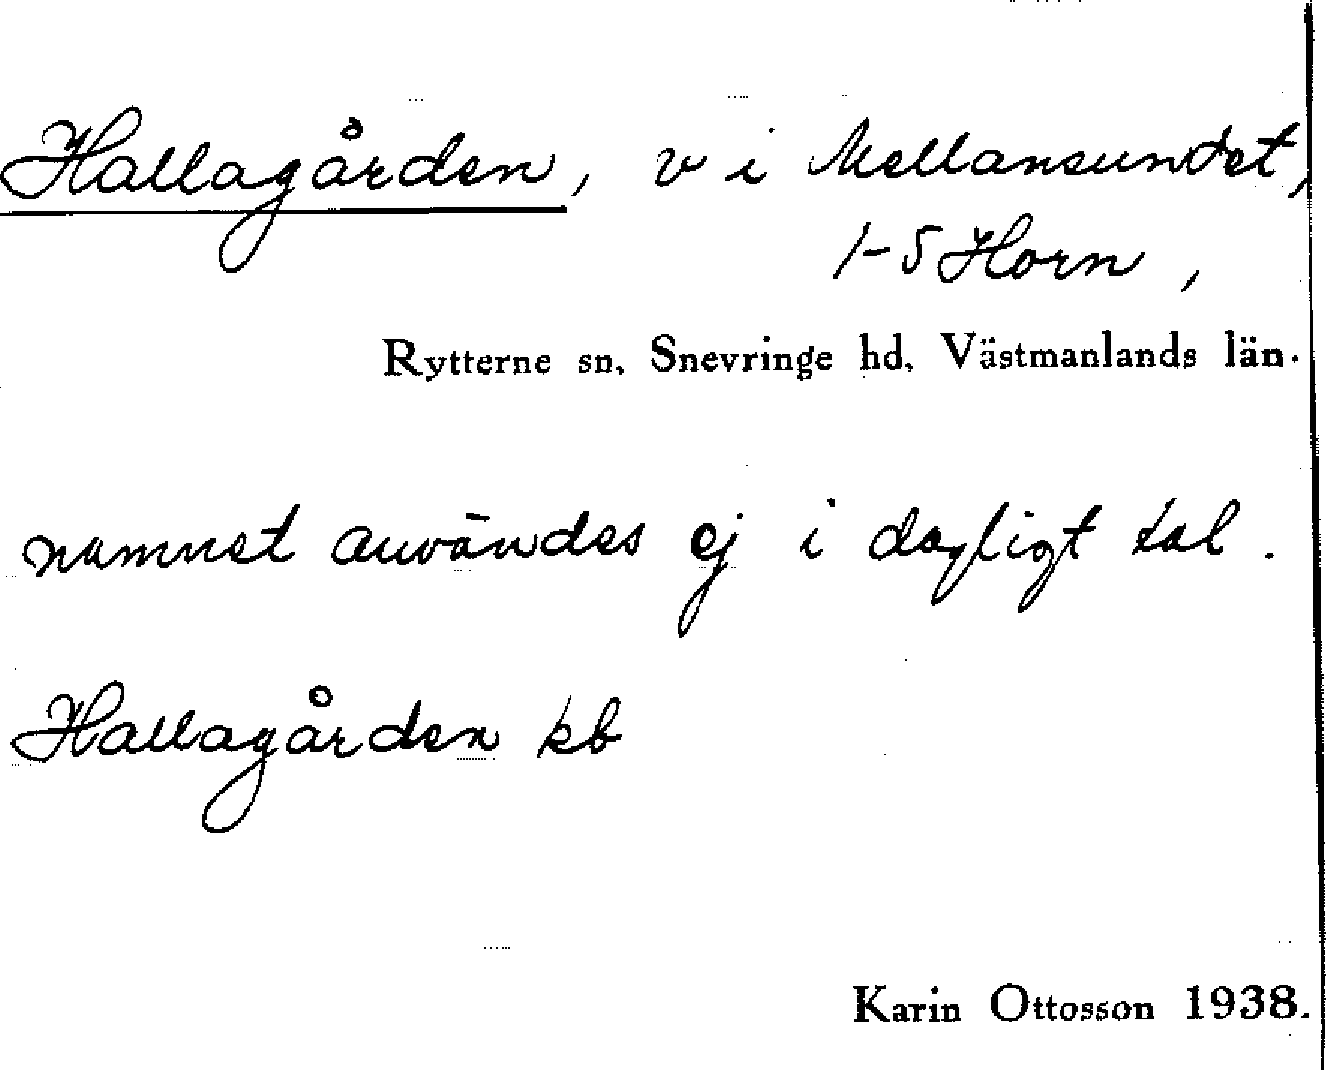 Hallagården, v i Mellansundet,
1-5 Horn,
Rytterne sn, Snevringe hd, Västmanlands län.
namnet användes ej i dagligt tal.
Hallagården kb
Karin Ottosson 1938.